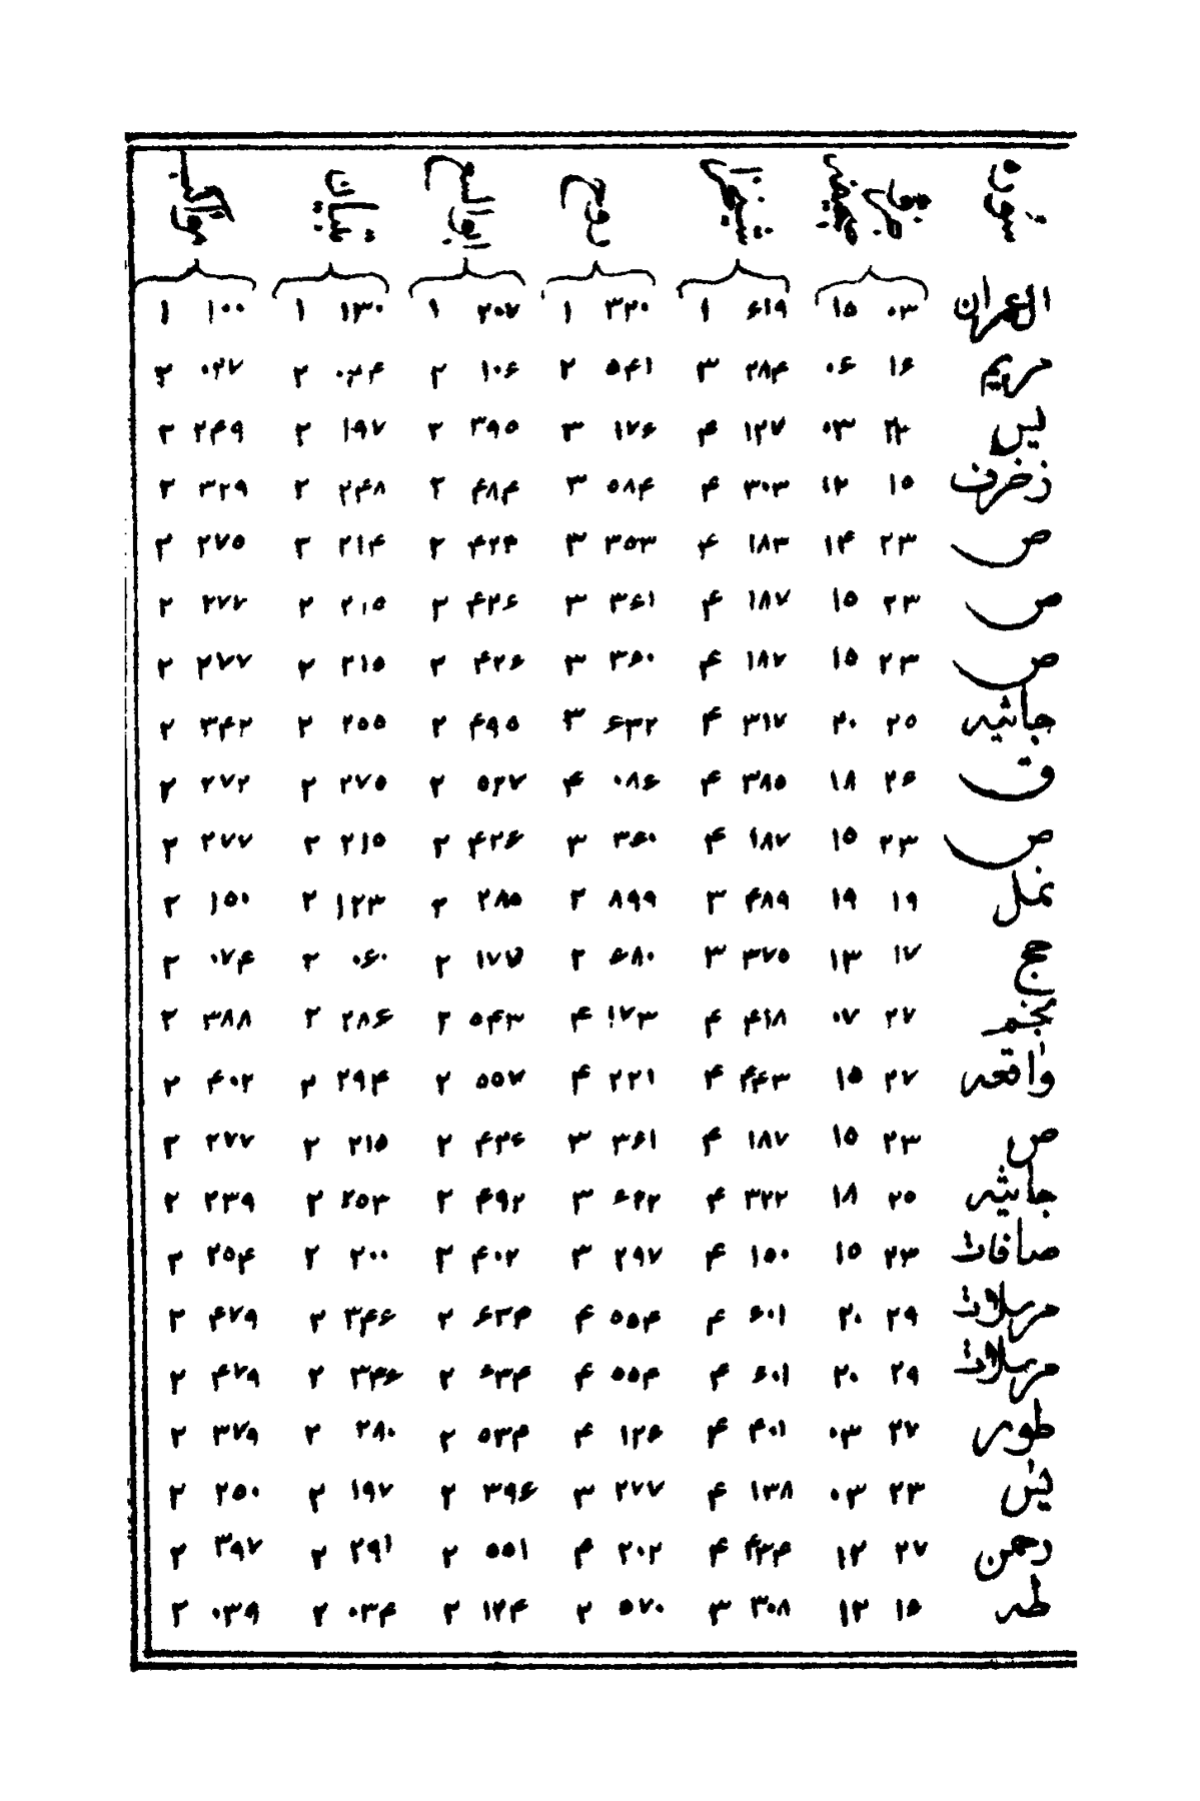 ال عمران ۰۳ ۱۵ ۶۱۹ ۱ ۳۲۰ ۱ ۲۰۷ ۱ ۱۳۰ ۱ ۱۰۰ ۱
مریم ۱۶ ۰۶ ۲۸۴ ۳ ۵۴۱ ۲ ۱۰۶ ۲ ۰۲۴ ۲ ۰۲۷ ۲
یس ۲۲ ۰۳ ۱۲۷ ۴ ۱۷۶ ۳ ۳۹۵ ۲ ۱۹۷ ۲ ۲۴۹ ۲
زخرف ۱۵ ۱۲ ۳۰۳ ۴ ۵۸۴ ۳ ۴۸۴ ۲ ۲۴۸ ۲ ۳۲۹ ۲
ص ۲۳ ۱۴ ۱۸۳ ۴ ۳۵۳ ۳ ۴۲۴ ۲ ۲۱۴ ۲ ۲۷۵ ۲
ص ۲۳ ۱۵ ۱۸۷ ۴ ۳۶۱ ۳ ۴۲۶ ۲ ۲۱۵ ۲ ۲۷۷ ۲
ص ۲۳ ۱۵ ۱۸۷ ۴ ۳۶۰ ۳ ۴۲۶ ۲ ۲۱۵ ۲ ۲۷۷ ۲
جاثیه ۲۵ ۲۰ ۳۱۷ ۴ ۶۳۲ ۳ ۴۹۵ ۲ ۲۵۵ ۲ ۳۴۲ ۲
ق ۲۶ ۱۸ ۳۸۵ ۴ ۰۸۶ ۴ ۵۲۷ ۲ ۲۷۵ ۲ ۲۷۲ ۲
ص ۲۳ ۱۵ ۱۸۷ ۴ ۳۶۰ ۳ ۴۲۶ ۲ ۲۱۵ ۲ ۲۷۷ ۲
نمل ۱۹ ۱۹ ۴۸۹ ۳ ۸۹۹ ۲ ۲۸۵ ۲ ۱۲۳ ۲ ۱۵۰ ۲
حج ۱۷ ۱۳ ۳۷۵ ۳ ۶۸۰ ۲ ۱۷۷ ۲ ۰۶۰ ۲ ۰۷۴ ۲
نجم ۲۷ ۰۷ ۴۱۸ ۴ ۱۷۳ ۴ ۵۴۳ ۲ ۲۸۶ ۲ ۳۸۸ ۲
واقعه ۲۷ ۱۵ ۴۴۳ ۴ ۲۲۱ ۴ ۵۵۷ ۲ ۲۹۴ ۲ ۴۰۲ ۲
ص ۲۳ ۱۵ ۱۸۷ ۴ ۳۶۱ ۳ ۴۲۶ ۲ ۲۱۵ ۲ ۲۷۷ ۲
جاثیه ۲۵ ۱۸ ۳۲۲ ۴ ۶۲۲ ۳ ۴۹۲ ۲ ۲۵۳ ۲ ۲۳۹ ۲
صافات ۲۳ ۱۵ ۱۵۰ ۴ ۲۹۷ ۳ ۴۰۲ ۲ ۲۰۰ ۲ ۲۵۴ ۲
مرسلات ۲۹ ۲۰ ۶۰۱ ۴ ۵۵۴ ۴ ۶۳۴ ۲ ۳۴۶ ۲ ۴۷۹ ۲
مرسلات ۲۹ ۲۰ ۶۰۱ ۴ ۵۵۴ ۴ ۶۳۴ ۲ ۳۴۶ ۲ ۴۷۹ ۲
طور ۲۷ ۰۳ ۴۰۱ ۴ ۱۲۶ ۴ ۵۳۴ ۲ ۲۸۰ ۲ ۳۷۹ ۲
یس ۲۳ ۰۳ ۱۳۸ ۴ ۲۷۷ ۳ ۳۹۶ ۲ ۱۹۷ ۲ ۲۵۰ ۲
رحمن ۲۷ ۱۲ ۴۲۴ ۴ ۲۰۲ ۴ ۵۵۱ ۲ ۲۹۱ ۲ ۳۹۷ ۲
طه ۱۵ ۱۲ ۳۰۸ ۳ ۵۷۰ ۲ ۱۲۴ ۲ ۰۳۴ ۲ ۰۳۹ ۲